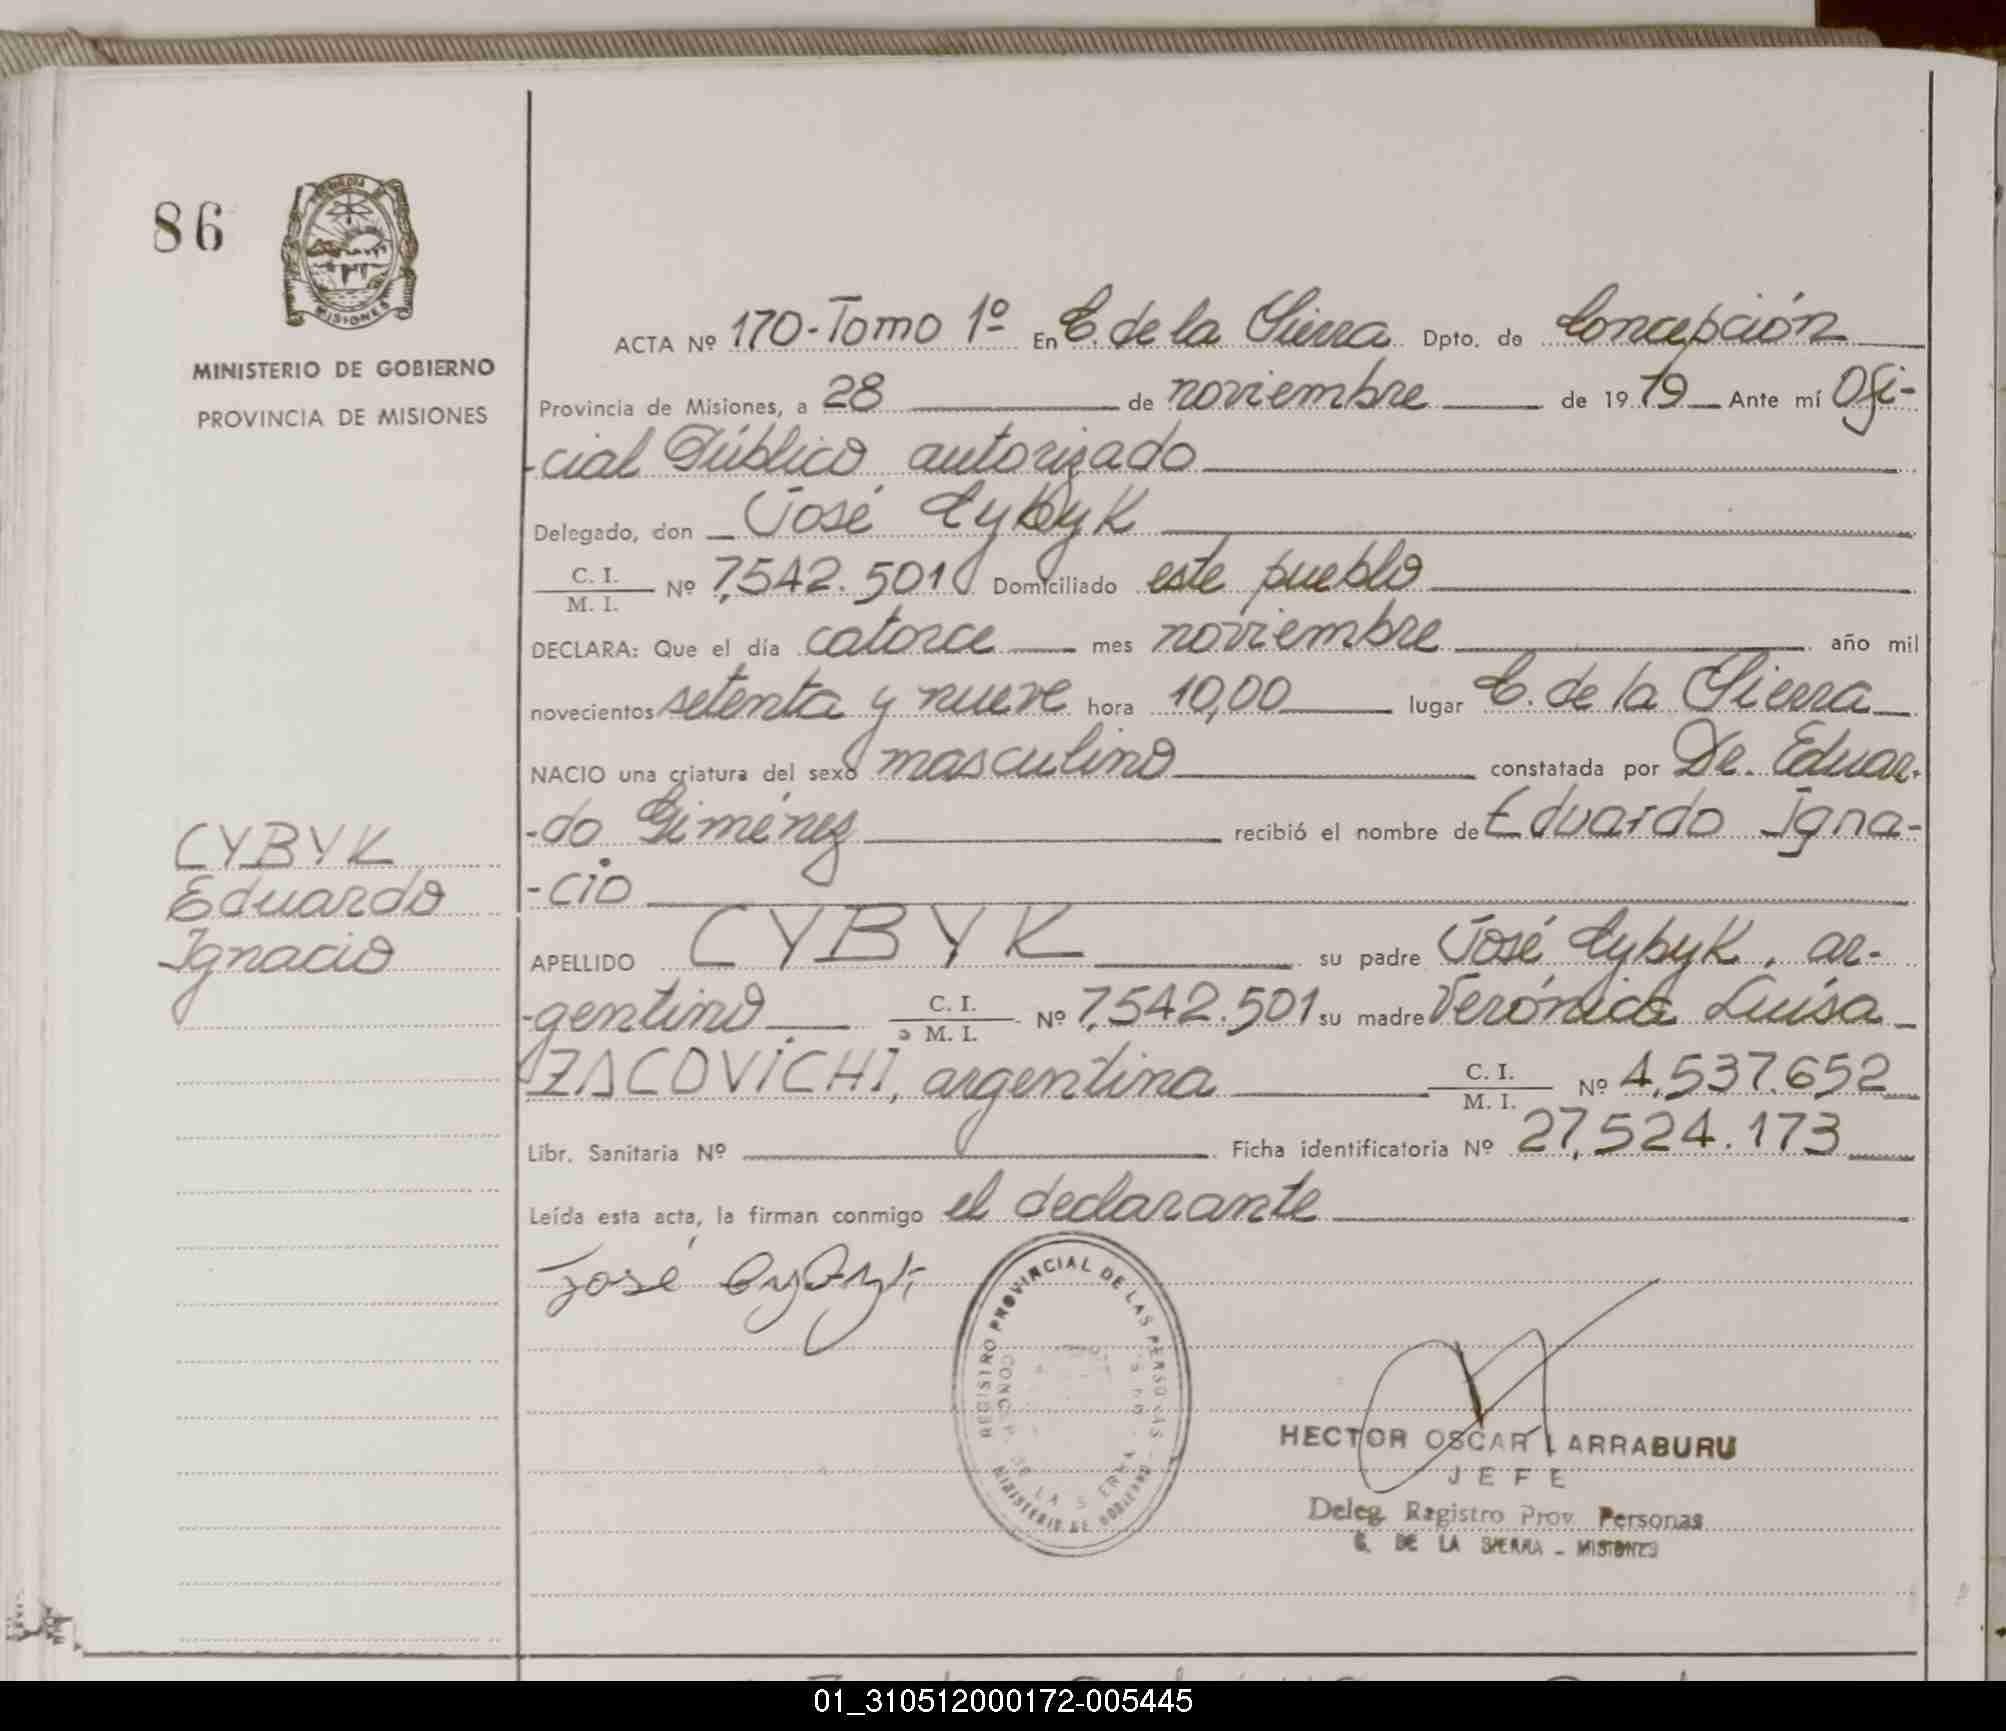 86
PROVINCIA DE
MISIONES
MINISTERIO DE GOBIERNO
PROVINCIA DE MISIONES
ACTA Nº 170-Tomo 1º En C. de la Sierra Dpto. de Concepción
Provincia de Misiones, a 28 de noviembre de 1979 Ante mí Ofi-
-cial Público autorizado
Delegado, don José Cybyk
C. I.
M. I. Nº 7,542.501 Domiciliado este pueblo
DECLARA: Que el día catorce mes noviembre año mil
novecientos setenta y nueve hora 10,00 lugar C. de la Sierra
NACIO una criatura del sexo masculino constatada por Dr. Eduar-
-do Giménez recibió el nombre de Eduardo Igna-
-cio
CYBYK
Eduardo
Ignacio
APELLIDO CYBYK su padre José Cybyk, ar-
-gentino C. I.
M. I. Nº 7,542.501 su madre Verónica Luisa
ZACOVICHI, argentina C. I.
M. I. Nº 4,537.652
Libr. Sanitaria Nº Ficha identificatoria Nº 27,524.173
Leída esta acta, la firman conmigo el declarante
José Cybyk
REGISTRO PROVINCIAL DE LAS PERSONAS
CONC. DE LA SIERRA
MINISTERIO DE GOBIERNO
HECTOR OSCAR LARRABURU
JEFE
Deleg. Registro Prov. Personas
C. DE LA SIERRA - MISIONES
01_310512000172-005445